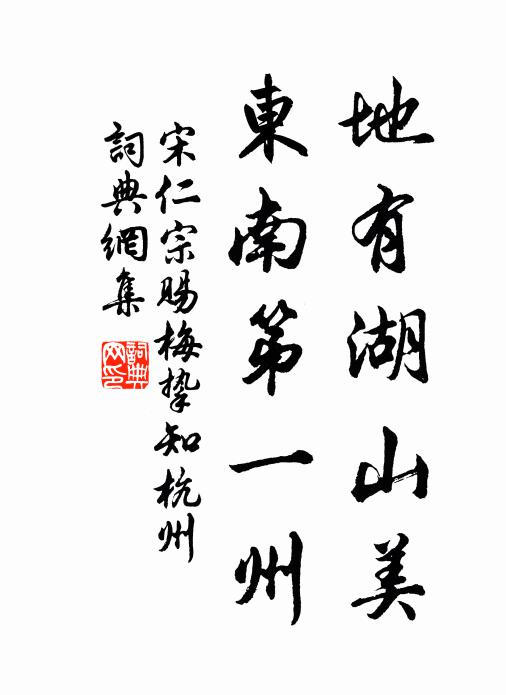 地有湖山美
東南第一州
宋仁宗賜梅摯知杭州
詞典網集
詞典網印